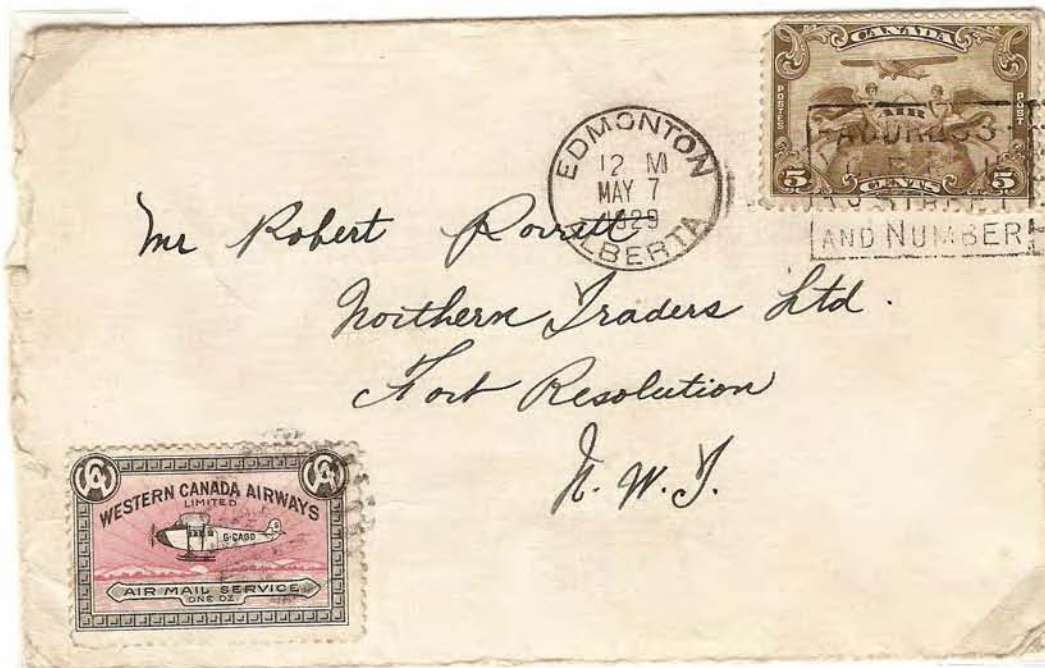 CANADA
POSTES
AIR
POST
5 CENTS 5
EDMONTON
12 M
MAY 7
1929
ALBERTA
ADDRESS
STREET
AND NUMBER
Mr Robert
Northern Traders Ltd.
Fort Resolution
N. W. T.
WESTERN CANADA AIRWAYS
LIMITED
G-CAGD
AIR MAIL SERVICE
ONE OZ.